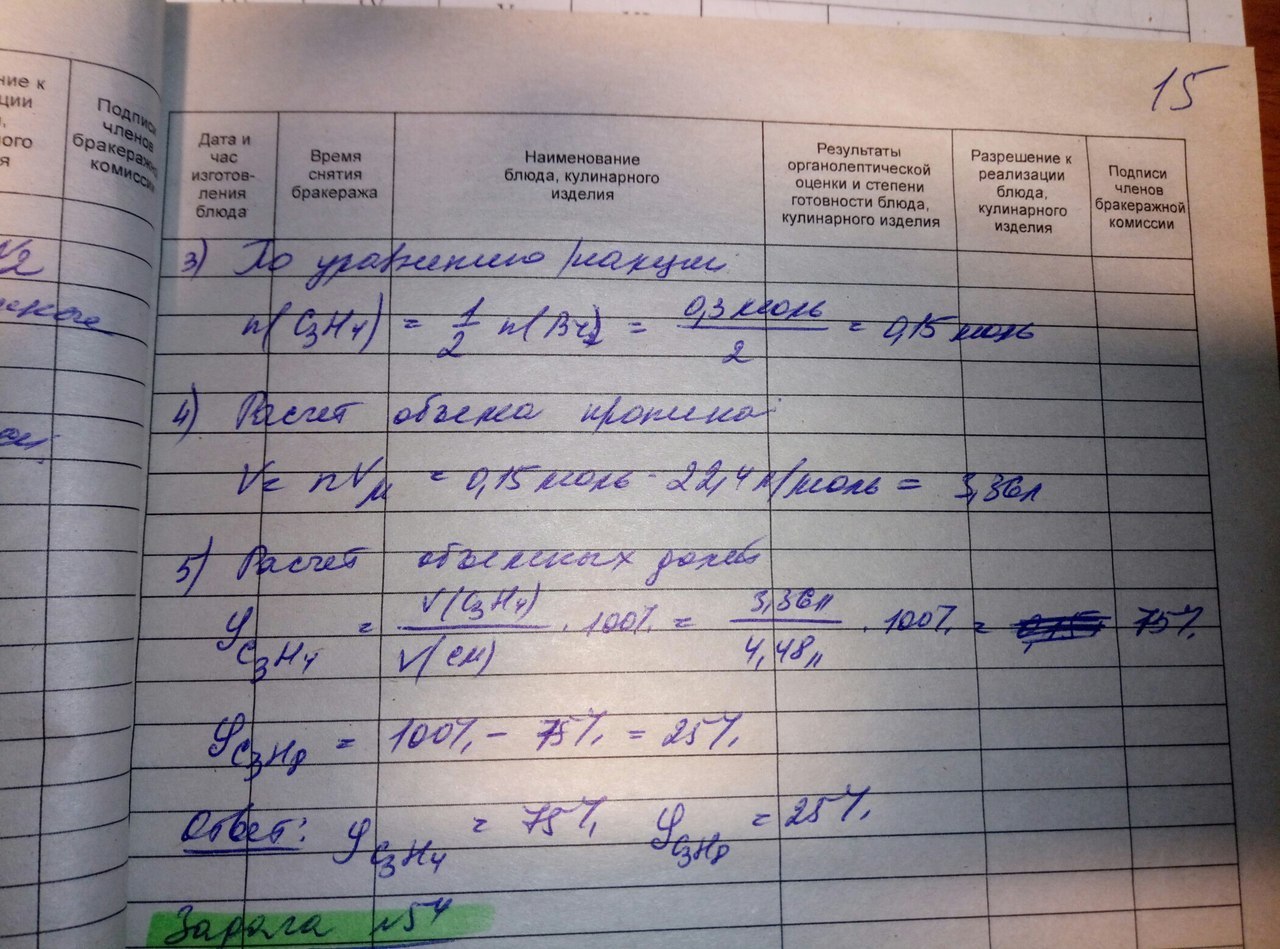 15
ние к
ции
ого
я
Подписи
членов
бракеражно
комиссии
Дата и
час
изготов-
ления
блюда
Время
снятия
бракеража
Наименование
блюда, кулинарного
изделия
Результаты
органолептической
оценки и степени
готовности блюда,
кулинарного изделия
Разрешение к
реализации
блюда,
кулинарного
изделия
Подписи
членов
бракеражной
комиссии
3) По уравнению реакции
n(C₃H₄) = 1/2 n(Br₂) = 0,3 моль / 2 = 0,15 моль
4) Расчет объема пропина
V = nVм = 0,15 моль · 22,4 л/моль = 3,36л
5) Расчет объемных долей
φC₃H₄ = V(C₃H₄) / V(см) · 100% = 3,36л / 4,48л · 100% = 75%
φC₃H₈ = 100% - 75% = 25%
Ответ: φC₃H₄ = 75% φC₃H₈ = 25%
Задача №54